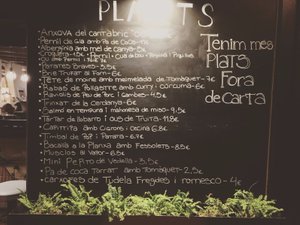 PLATS
Tenim més
PLATS
Fora
de Carta
- Anxova del cantàbric
- Pernil de Gla amb Pa de Coca
- Albergínia amb mel de Canya - 5€
- Croqueta - 1.5€
- Patates Braves - 5.5€
- Brie Trufat al Forn - 6€
- Tête de moine amb melmelada de Tomàquet - 7€
- Rabas de Pollastre amb curry i cúrcuma - 6€
- de Porc i Gambes - 4.5€
- Trinxat de la Cerdanya - 6€
- Salmó en tempura i mahonesa de miso - 9.5€
- Tàrtar de llobarro i ous de Truita - 11.8€
- Capipota amb Cigrons i 6.8€
- Timbal de Pop i Panxeta - 6.7€
- Bacallà a la Planxa amb Fesolets - 8.5€
- Musclos al Vapor - 6.5€
- Mini Pepito de Vedella - 3.5€
- Pa de coca Torrat amb Tomàquet - 2.5€
- Carxofes de Tudela Fregides i romesco - 4€